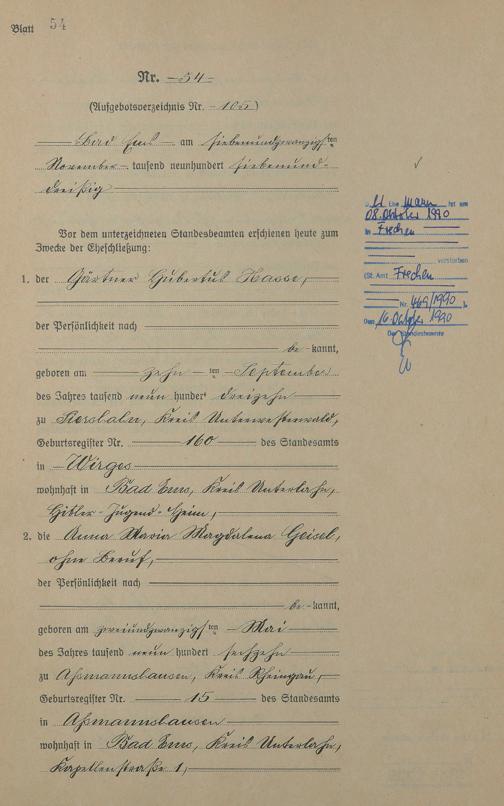 Blatt 54
Nr. 54
(Aufgebotsverzeichnis Nr. 105)
Bad Ems am siebenundzwanzigsten
November tausend neunhundert siebenund-
dreißig
Vor dem unterzeichneten Standesbeamten erschienen heute zum
Zwecke der Eheschließung:
1. der Gärtner Hubertus Hasse,
der Persönlichkeit nach
be kannt,
geboren am zehn ten September
des Jahres tausend neun hundert dreizehn
zu Staudt, Kreis Unterwesterwald,
Geburtsregister Nr. 160 des Standesamts
in Wirges
wohnhaft in Bad Ems, Kreis Unterlahn,
Hitler-Jugend-Heim,
2. die Anna Maria Magdalena Geisel,
ohne Beruf,
der Persönlichkeit nach
be kannt,
geboren am zweiundzwanzigsten Mai
des Jahres tausend neun hundert sechzehn
zu Aßmannshausen, Kreis Rheingau,
Geburtsregister Nr. 15 des Standesamts
in Aßmannshausen
wohnhaft in Bad Ems, Kreis Unterlahn,
Kapellenstraße 1,
Mann ist am
08. Oktober 1990
in Frechen
verstorben
(St. Amt Frechen
Nr. 469/1990)
Den 16. Oktober 1990
Der Standesbeamte